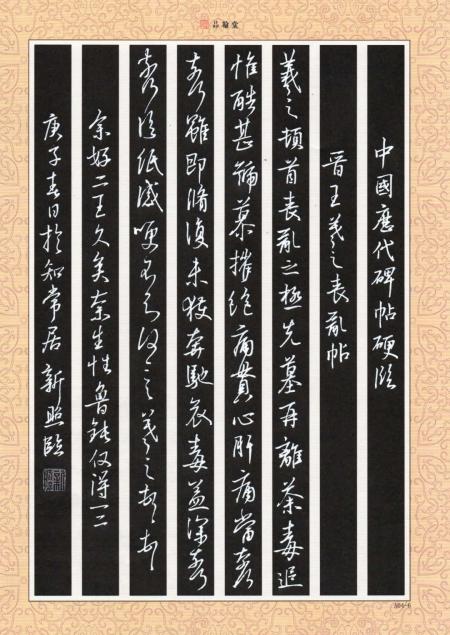 品翰堂
中國歷代碑帖硬臨
晉王羲之喪亂帖
羲之頓首喪亂之極先墓再離荼毒追
惟酷甚號慕摧絕痛貫心肝痛當奈何
奈何雖即脩復未獲奔馳哀毒益深奈何
奈何臨紙感哽不知何言羲之頓首頓首
余好二王久矣奈生性魯鈍仅得一二
庚子春日於知常居新照臨
M04-6